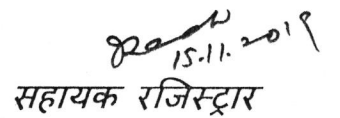 15.11.2019
सहायक रजिस्ट्रार